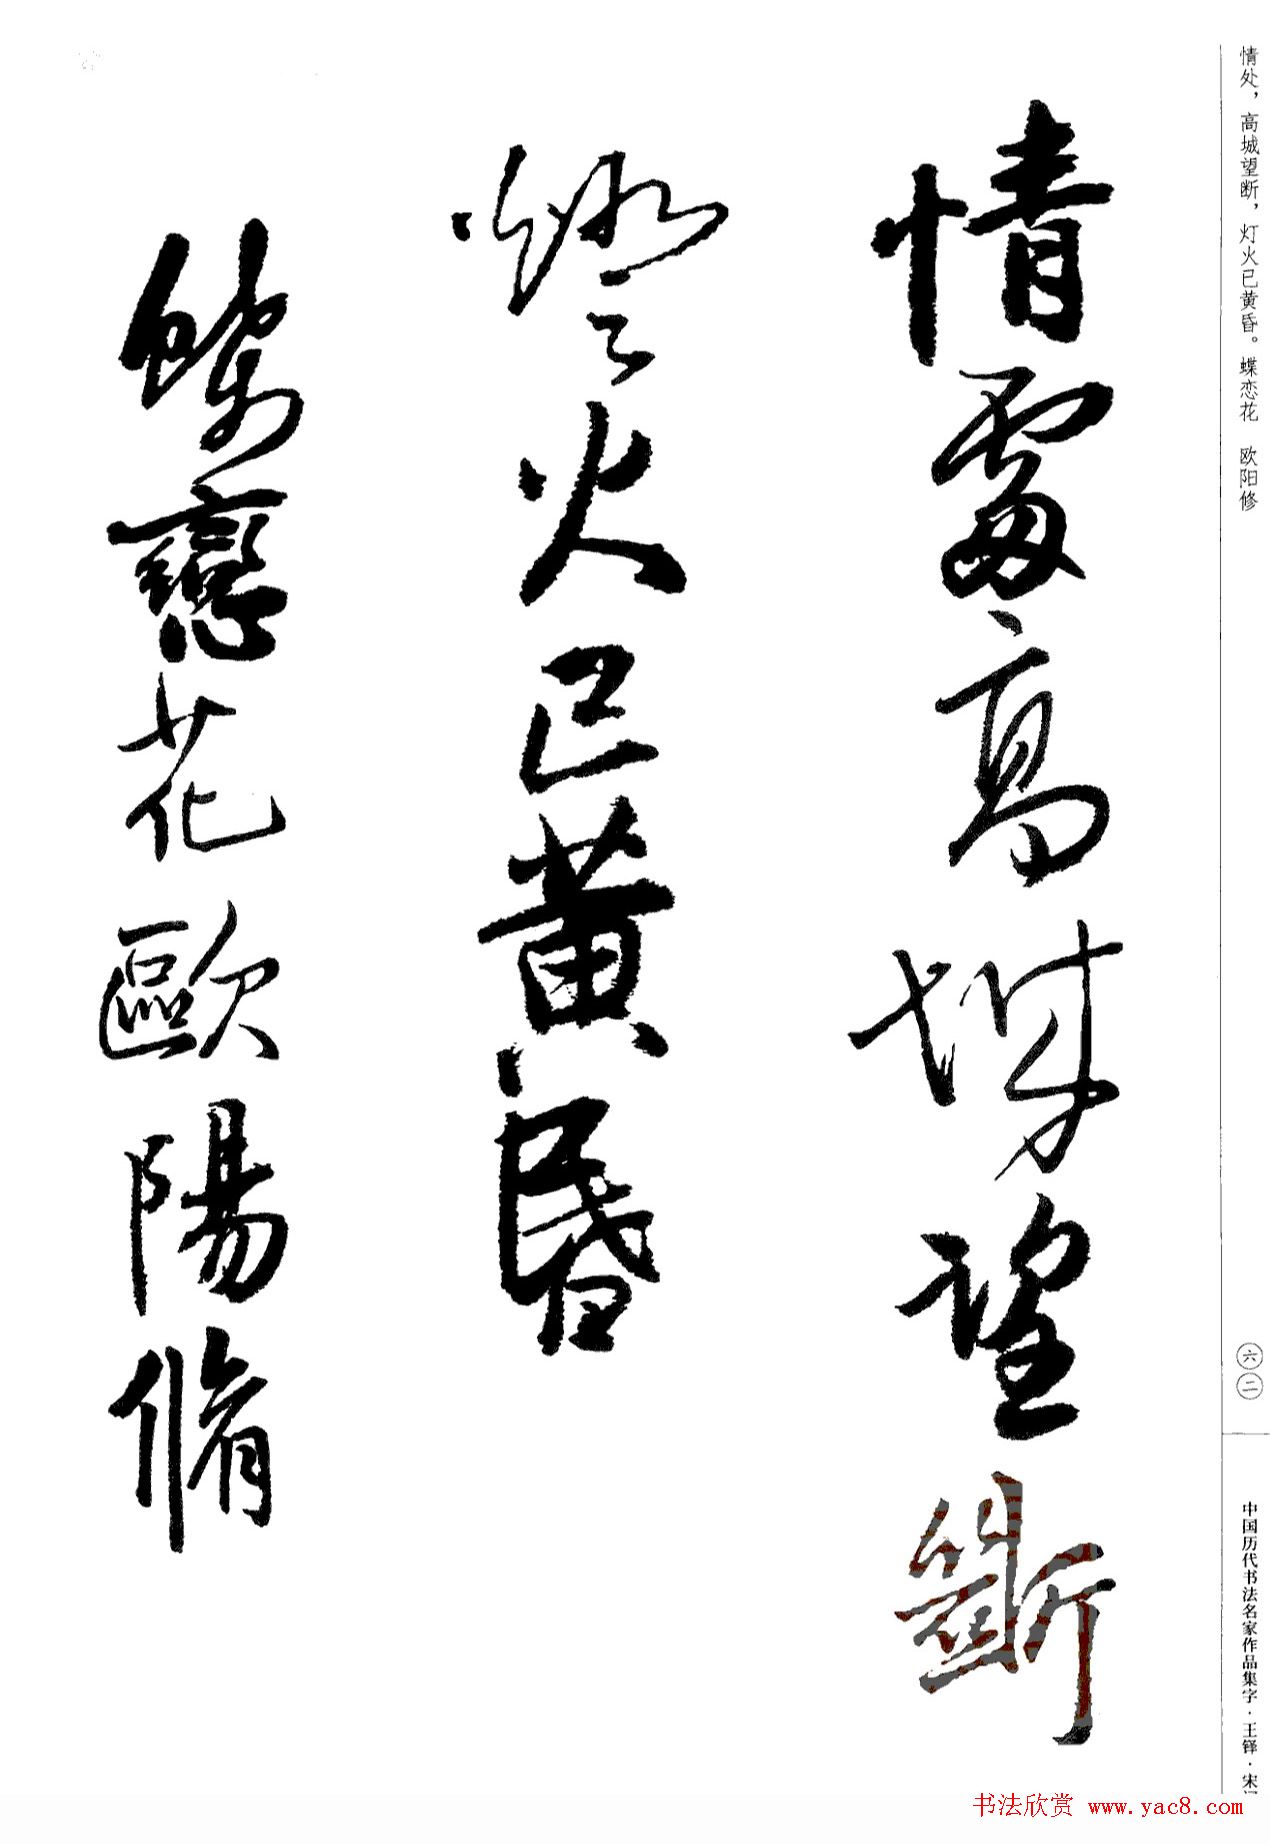 情处，高城望断，灯火已黄昏。蝶恋花 欧阳修
六二
中国历代书法名家作品集字·王铎·宋
情處高城望斷
燈火已黄昏
蝶戀花歐陽脩
书法欣赏 www.yac8.com